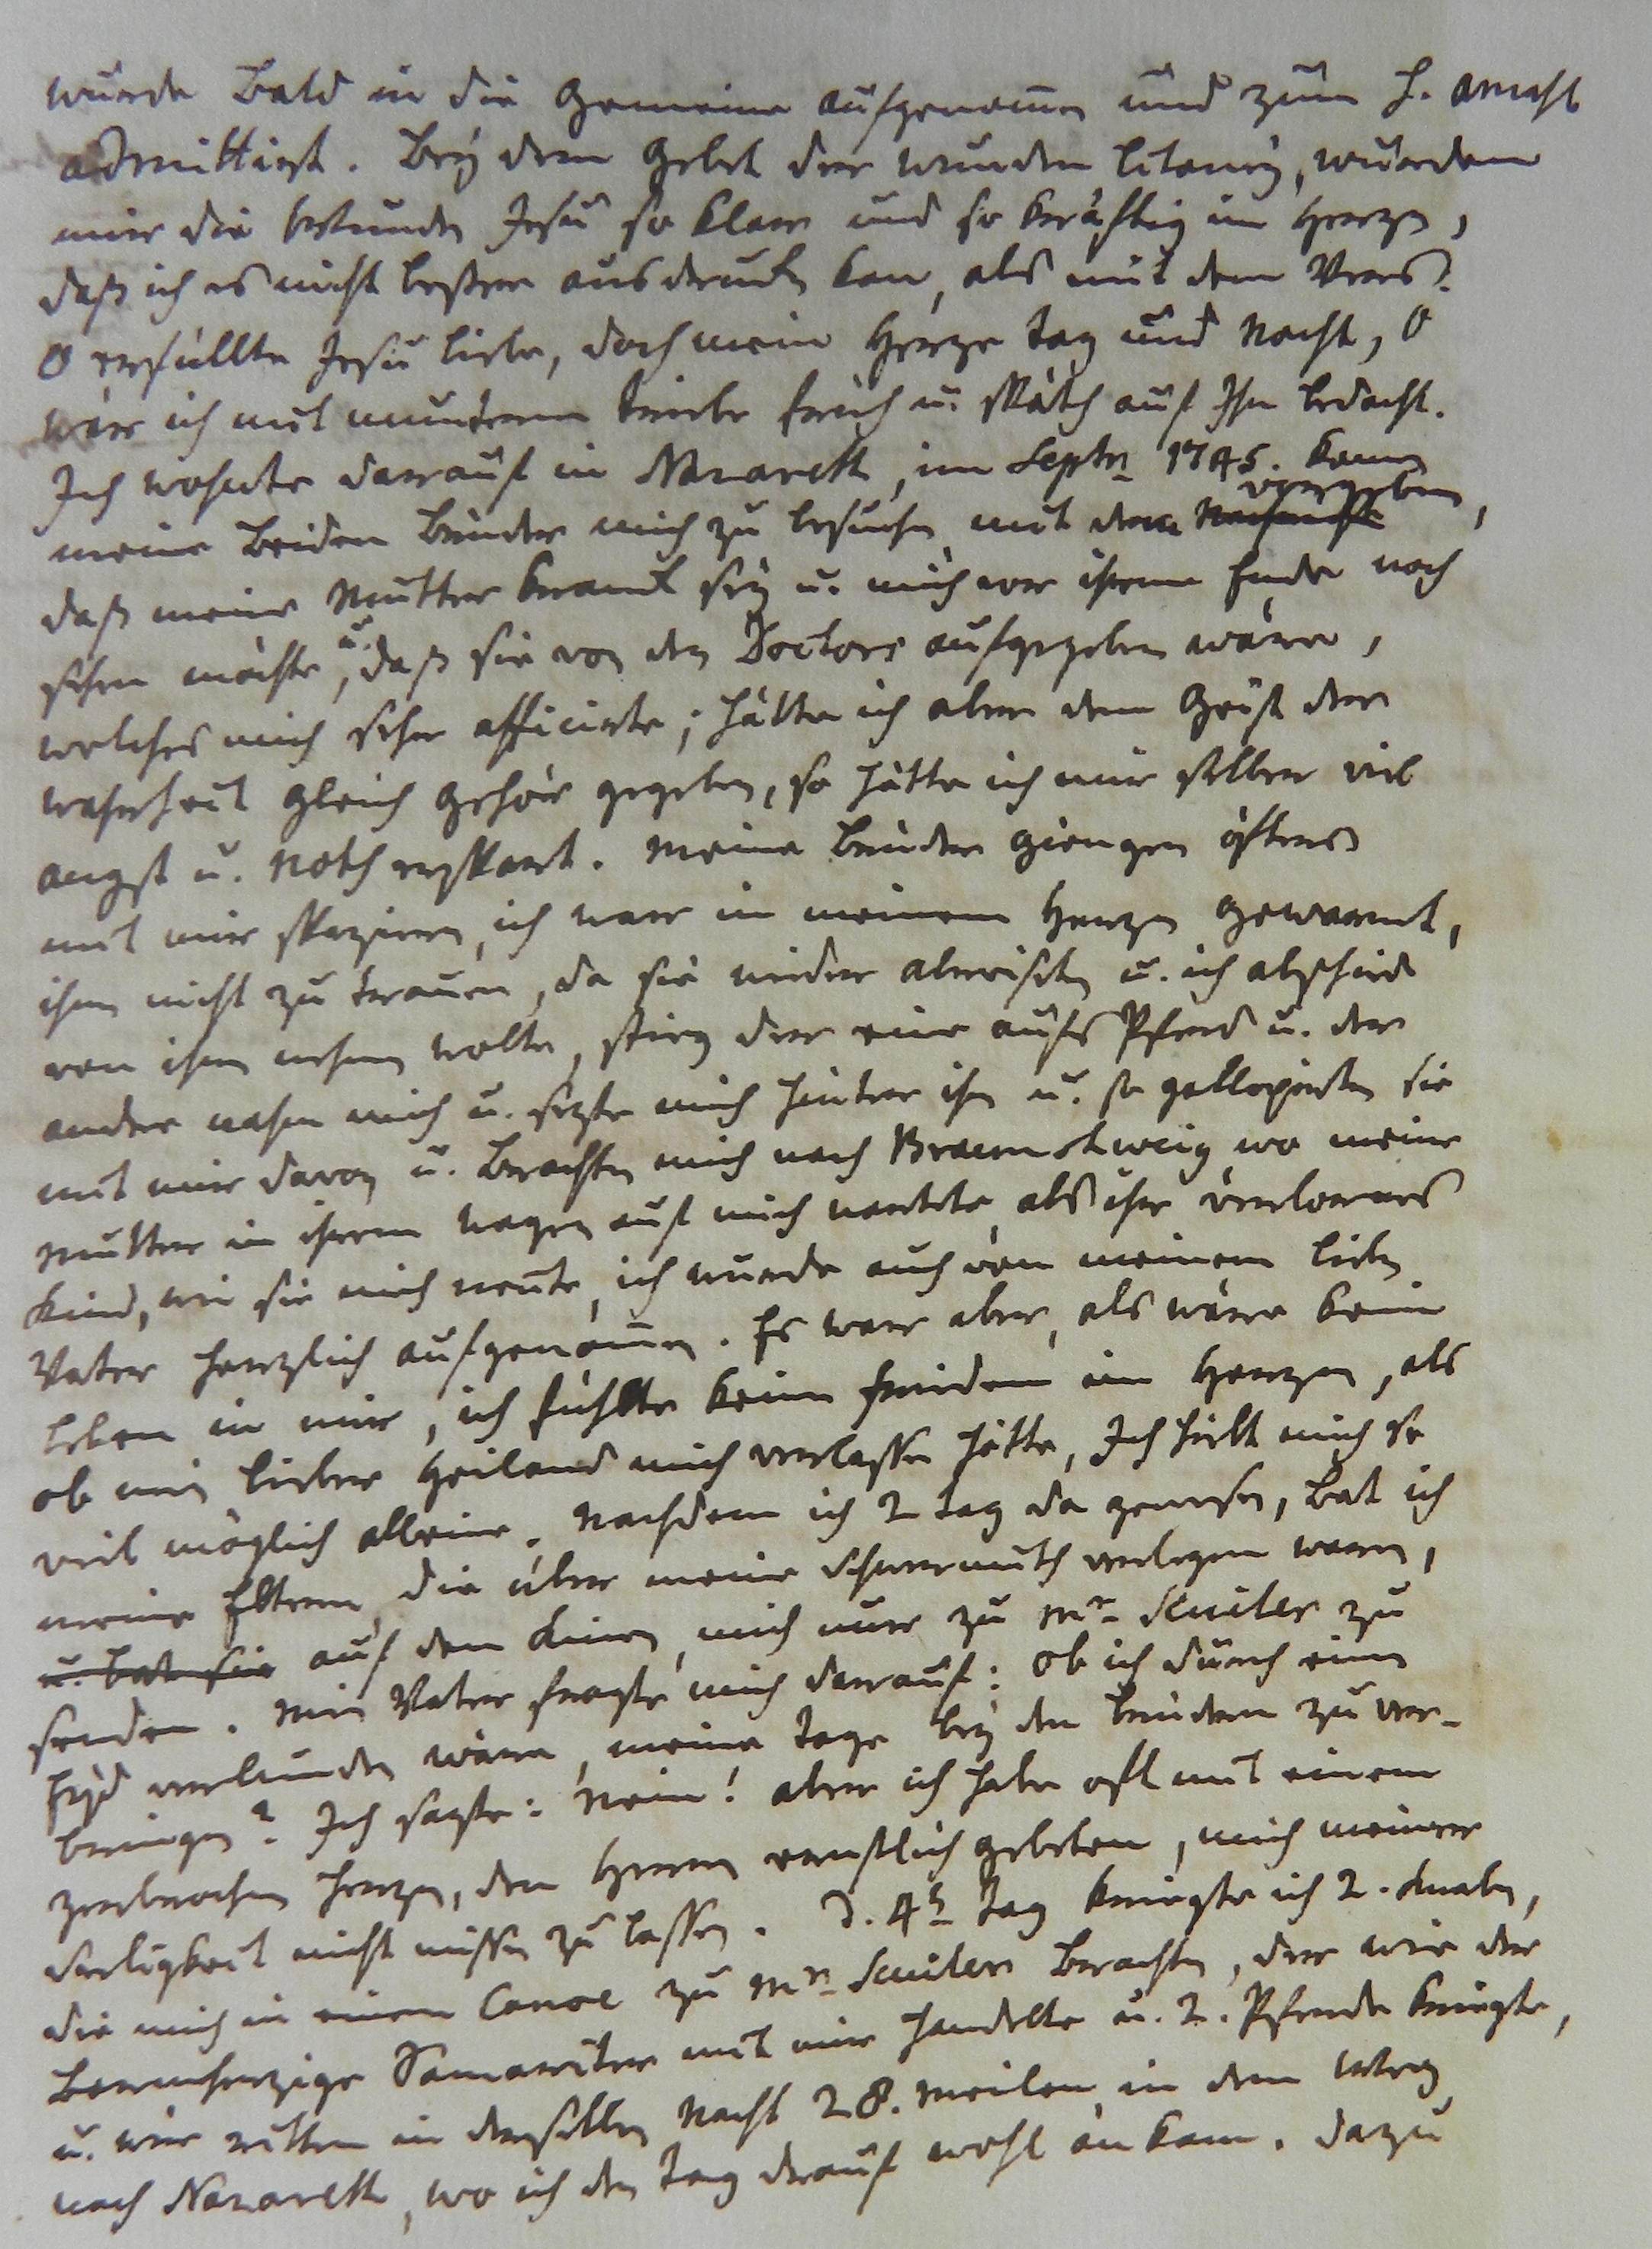 wurde bald in die Gemeine aufgenom̅en und zum H. Amahl
admittirt. Bey dem Gebet der Wunden Litaney, wurden
mir die Wunden Jesu so klar und so kräftig im Herzen,
daß ich es nicht beßer ausdrucken kan, als mit dem Vers:
O erfüllte Jesu Liebe, doch mein Herze Tag und Nacht, O
wär ich mit munterm Triebe früh u. späth auf Ihn bedacht.
Ich wohnte darauf in Nazareth, im Septr 1745. kamen
meine beiden Brüder mich zu besuchen mit dem vorgeben,
daß meine Mutter krank sey u. mich vor ihrem Ende noch
sehen möchte, u. daß sie von den Doctors aufgegeben wäre,
welches mich sehr afficirte; hätte ich aber dem Geist der
Wahrheit gleich Gehör gegeben, so hätte ich mir selber viel
Angst u. Noth erspart. Meine Brüder giengen öfters
mit mir spaziren, ich war in meinem Herzen gewarnt,
ihnen nicht zu trauen, da sie wieder abreisten u. ich abschied
von ihnen nehmen wolte, stieg der eine aufs Pferd u. der
andre nahm mich u. sezte mich hinter ihn u. so gallopirten sie
mit mir davon u. brachten mich nach Braunschweig wo meine
Mutter in ihrem Wagen auf mich wartete, als ihr verlornes
Kind, wie sie mich nente, ich wurde auch von meinem lieben
Vater herzlich aufgenom̅en. Es war aber, als wäre kein
Leben in mir, ich fühlte keinen Frieden im Herzen, als
ob mein lieber Heiland mich verlassen hätte, Ich hielt mich so
viel möglich alleine. Nachdem ich 2 Tag da gewesen, bat ich
meine Eltern, die über meine Schwermuth verlegen waren,
u. bat sie auf den Knien, mich nur zu Mr. Sculer zu
senden. Mein Vater fragte mich darauf: Ob ich durch einen
Eyd verbunden wäre, meine Tage bey den Brüdern zu ver-
bringen? Ich sagte: Nein! aber ich habe oft mit einem
zerbrochnen Herzen, den Herrn ernstlich gebeten, mich meiner
Seeligkeit nicht missen zu lassen. D. 4t Tag kriegte ich 2. Knaben,
die mich in einem Canoe zu Mr Sculer brachten, der wie der
Barmherzige Samariter mit mir handelte u. 2. Pferde kriegte,
u. wir ritten in derselben Nacht 28. Meilen in dem Weg
nach Nazareth, wo ich den Tag drauf wohl ankam. Dazu